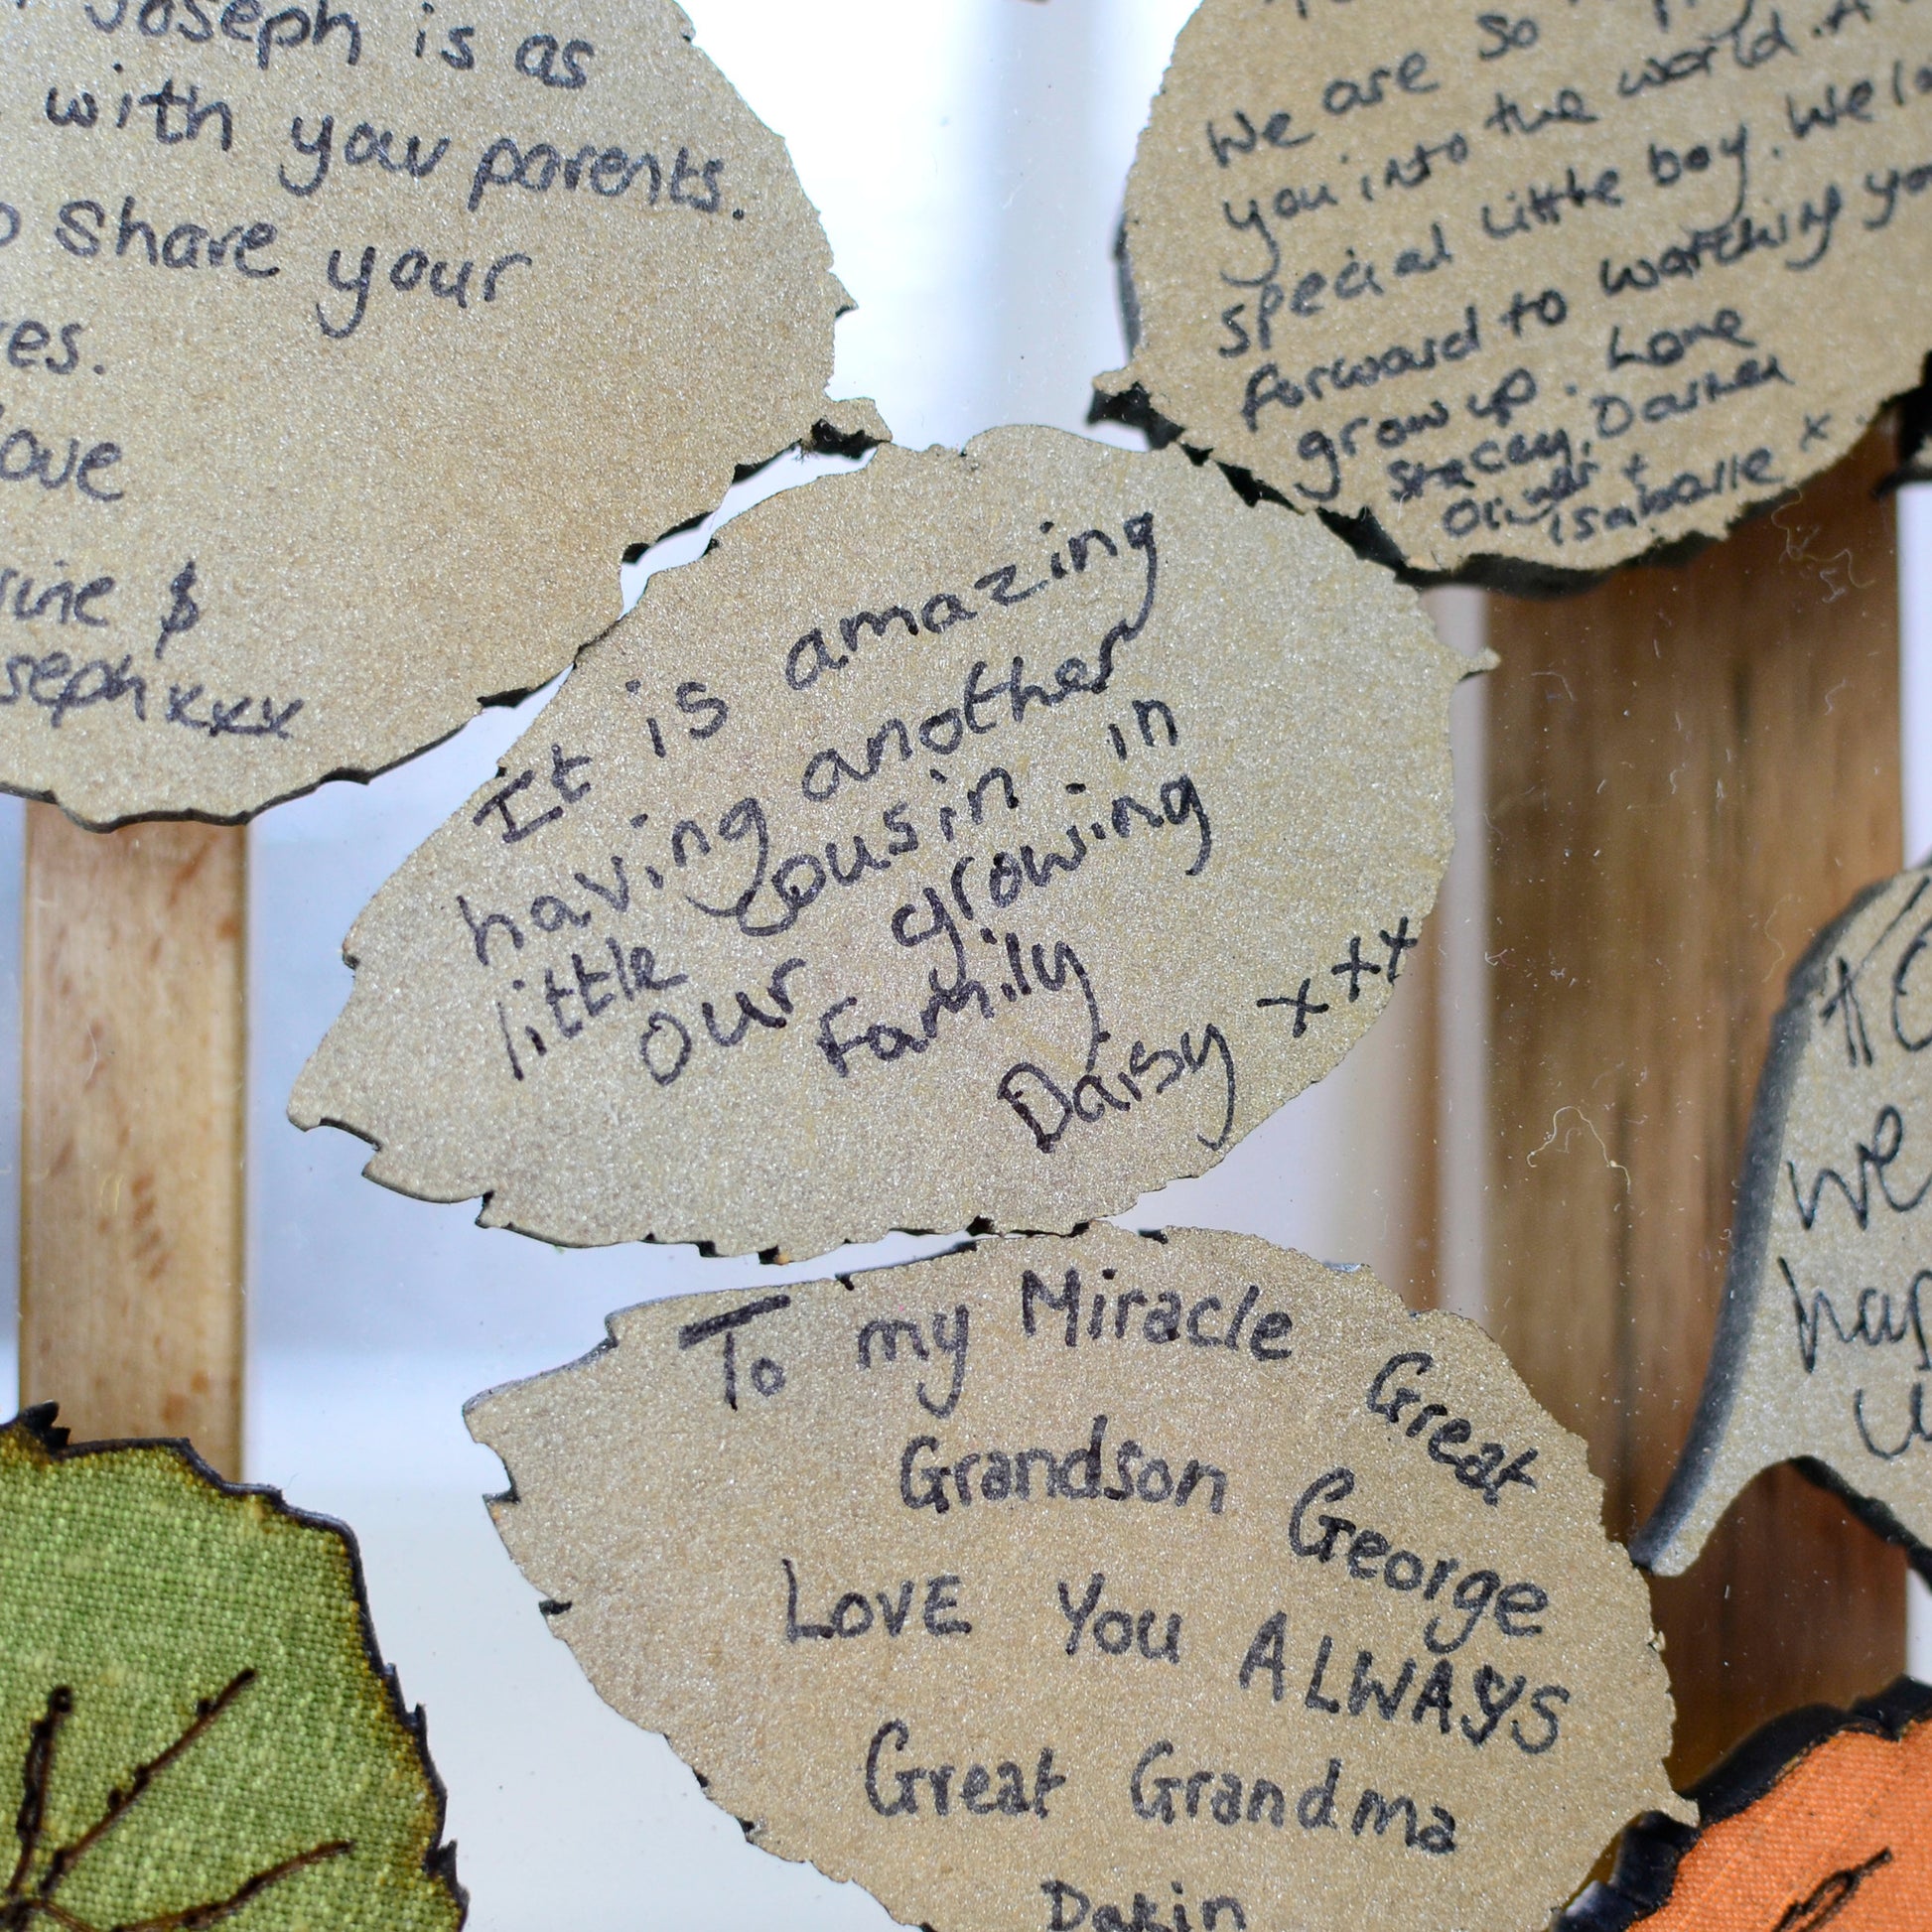 Joseph is as
with your parents.
share your
res.
love
rine &
seph xxx
We are so
you into the world. A
special little boy. We
forward to watching you
grow up. Love
Stacey, Darren
Oliver +
Isabelle x
It is amazing
having another
little cousin in
our growing
family
Daisy xxx
To my Miracle Great
Grandson George
LOVE You ALWAYS
Great Grandma
Dakin
we
hap